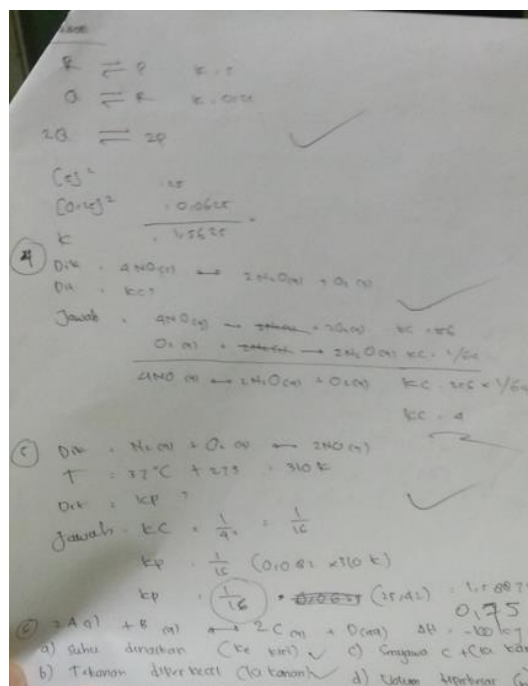 R ⇌ P K = 5
Q ⇌ R K = 0,25
2Q ⇌ 2P
[5]² = 25
[0.25]² = 0.0625
K = 1,5625
4 Dik = 4NO(g) ↔ 2N₂O(g) + O₂(g)
Dit = KC?
Jawab = 4NO(g) → + 2O₂(g) KC = 256
O₂(g) + → 2N₂O(g) KC = 1/64
4NO(g) ↔ 2N₂O(g) + O₂(g) KC = 256 × 1/64
KC = 4
5 Dik = N₂(g) + O₂(g) ↔ 2NO(g)
T = 37°C + 273 = 310 K
Dit = KP ?
Jawab = KC = = 1/16
KP = 1/16 (0,082 × 310 K)
KP = 1/16 • (25,42) = 1,5887
0,75
6 2A(g) + B(g) ↔ 2C(g) + D(g) ΔH =
a) Suhu dinaikan (ke kiri) c)
b) Tekanan diperkecil (ke kanan) d) Volum diperbesar